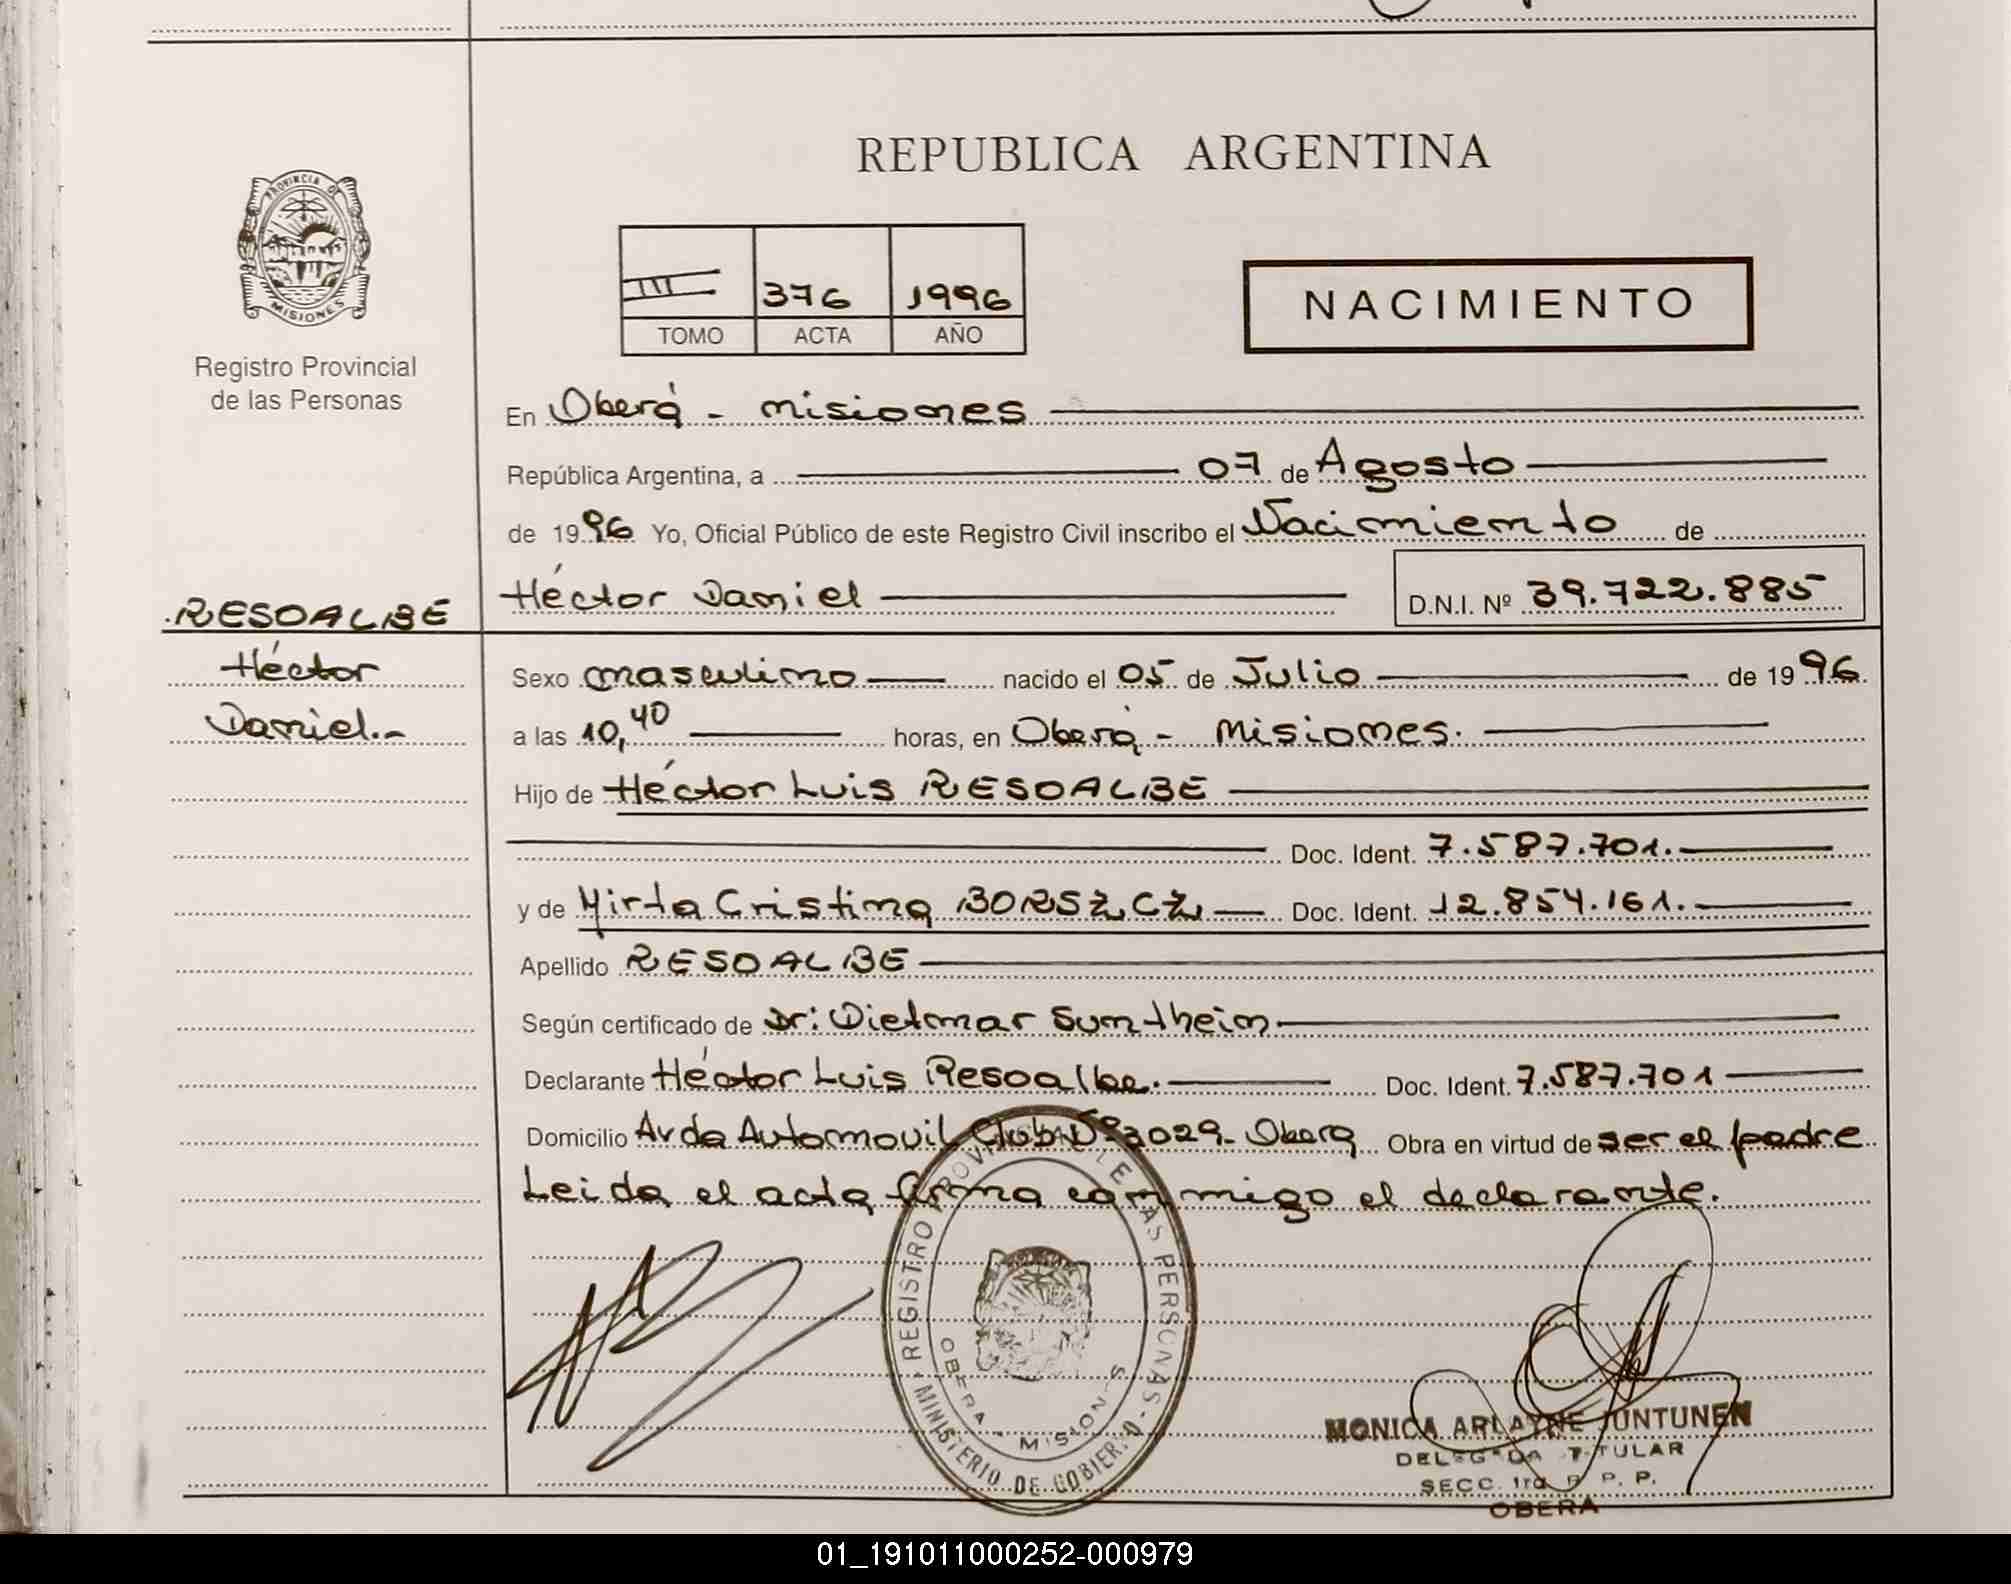 REPUBLICA ARGENTINA
PROVINCIA DE
MISIONES
Registro Provincial
de las Personas
III 376 1996
TOMO ACTA AÑO
NACIMIENTO
En Oberá - Misiones
República Argentina, a 07 de Agosto
de 1996 Yo, Oficial Público de este Registro Civil inscribo el Nacimiento de
Héctor Daniel D.N.I. Nº 39.722.885
RESOALBE
Héctor
Daniel.-
Sexo masculino nacido el 05 de Julio de 1996
a las 10,40 horas, en Oberá - Misiones.
Hijo de Héctor Luis RESOALBE
Doc. Ident. 7.587.701.
y de Mirta Cristina BORSZCZ Doc. Ident. 12.854.161.
Apellido RESOALBE
Según certificado de Dr: Dietmar Suntheim
Declarante Héctor Luis Resoalbe. Doc. Ident. 7.587.701
Domicilio Avda Automovil Club Nº 3029- Obera Obra en virtud de ser el padre
Leida el acta firma conmigo el declarante.
REGISTRO PROVINCIAL DE LAS PERSONAS -
MINISTERIO DE GOBIERNO
OBERA - MISIONES
MONICA ARLAYNE JUNTUNEN
DELEGADA TITULAR
SECC. 1ra R. P. P.
OBERA
01_191011000252-000979